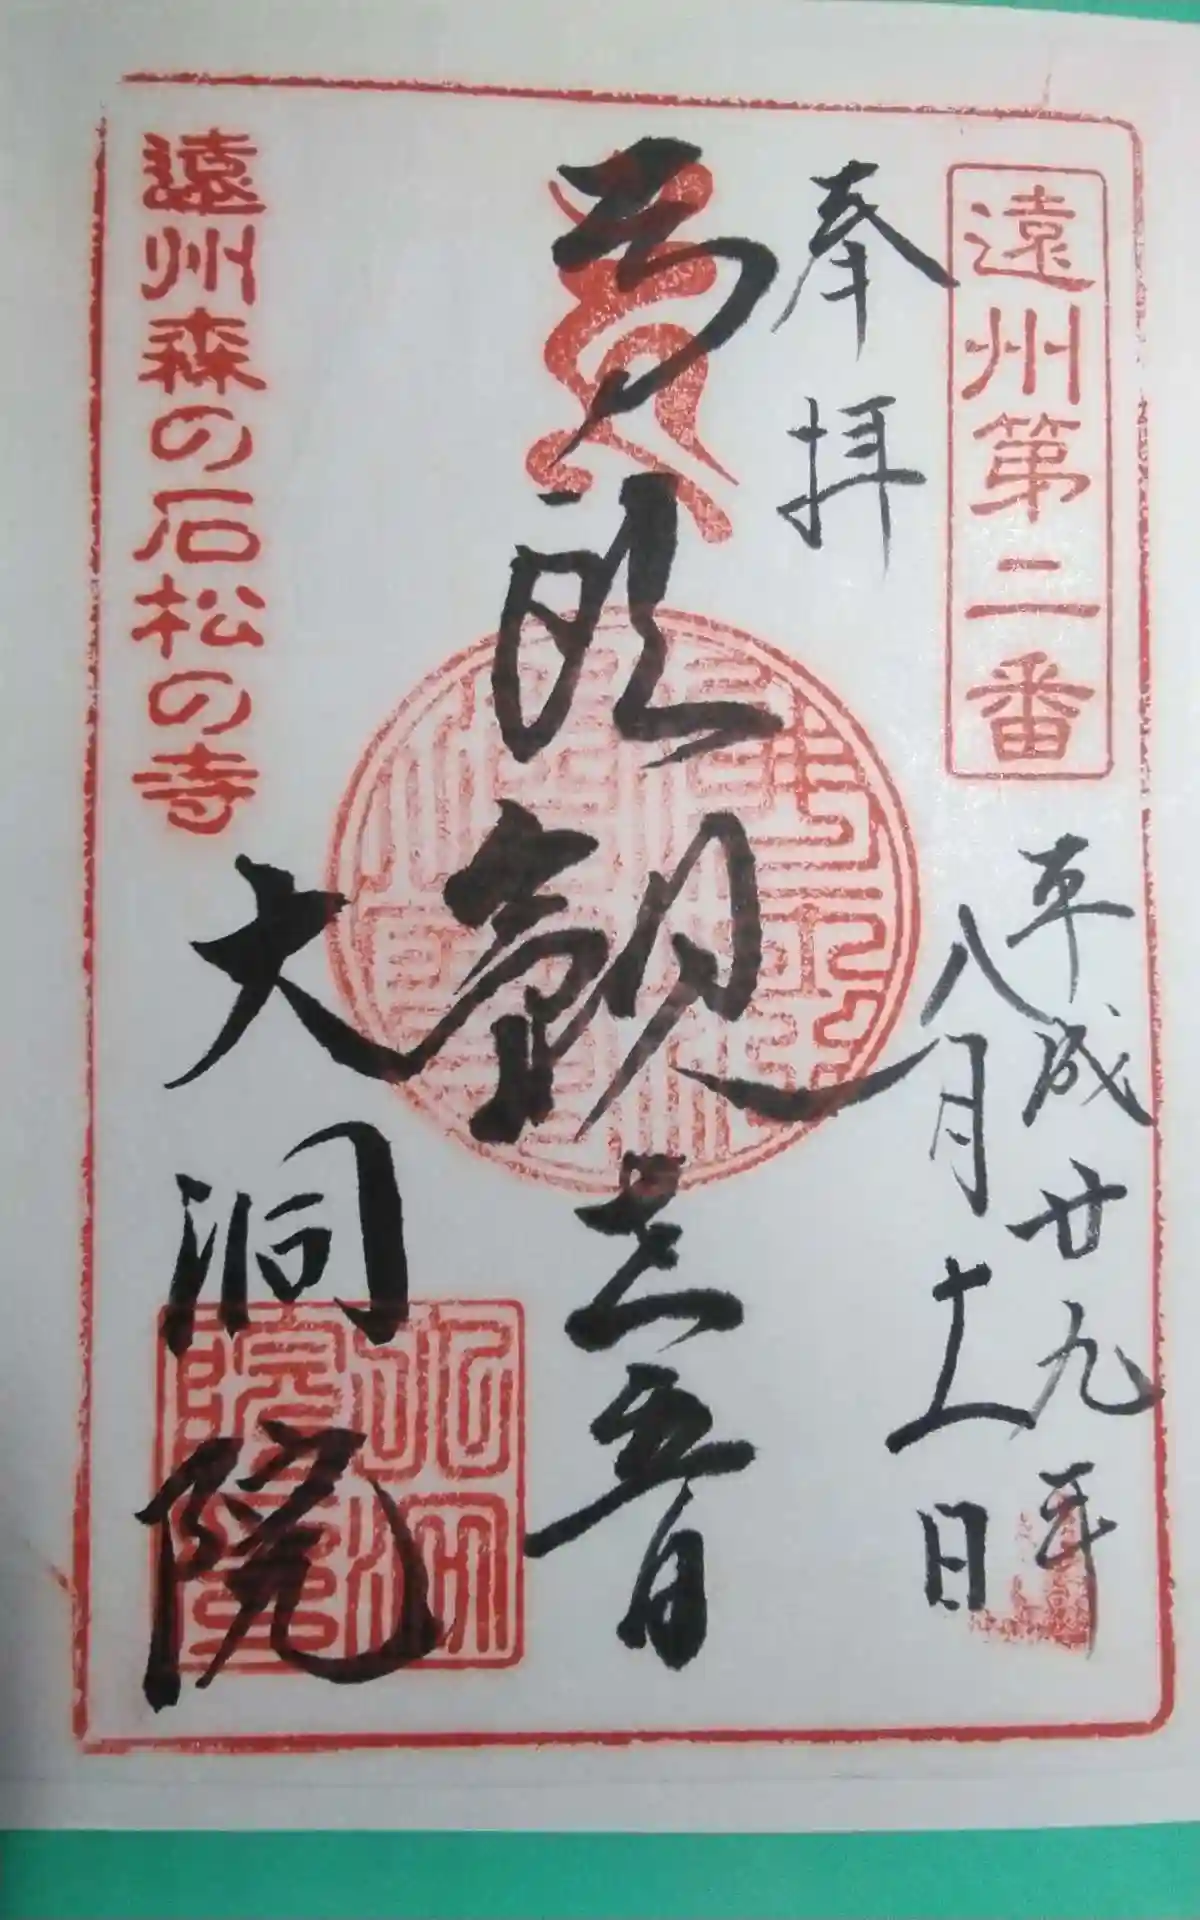 遠州第二番
平成廿九年
八月十日
奉拝
馬頭観世音
遠州森の石松の寺
大洞院